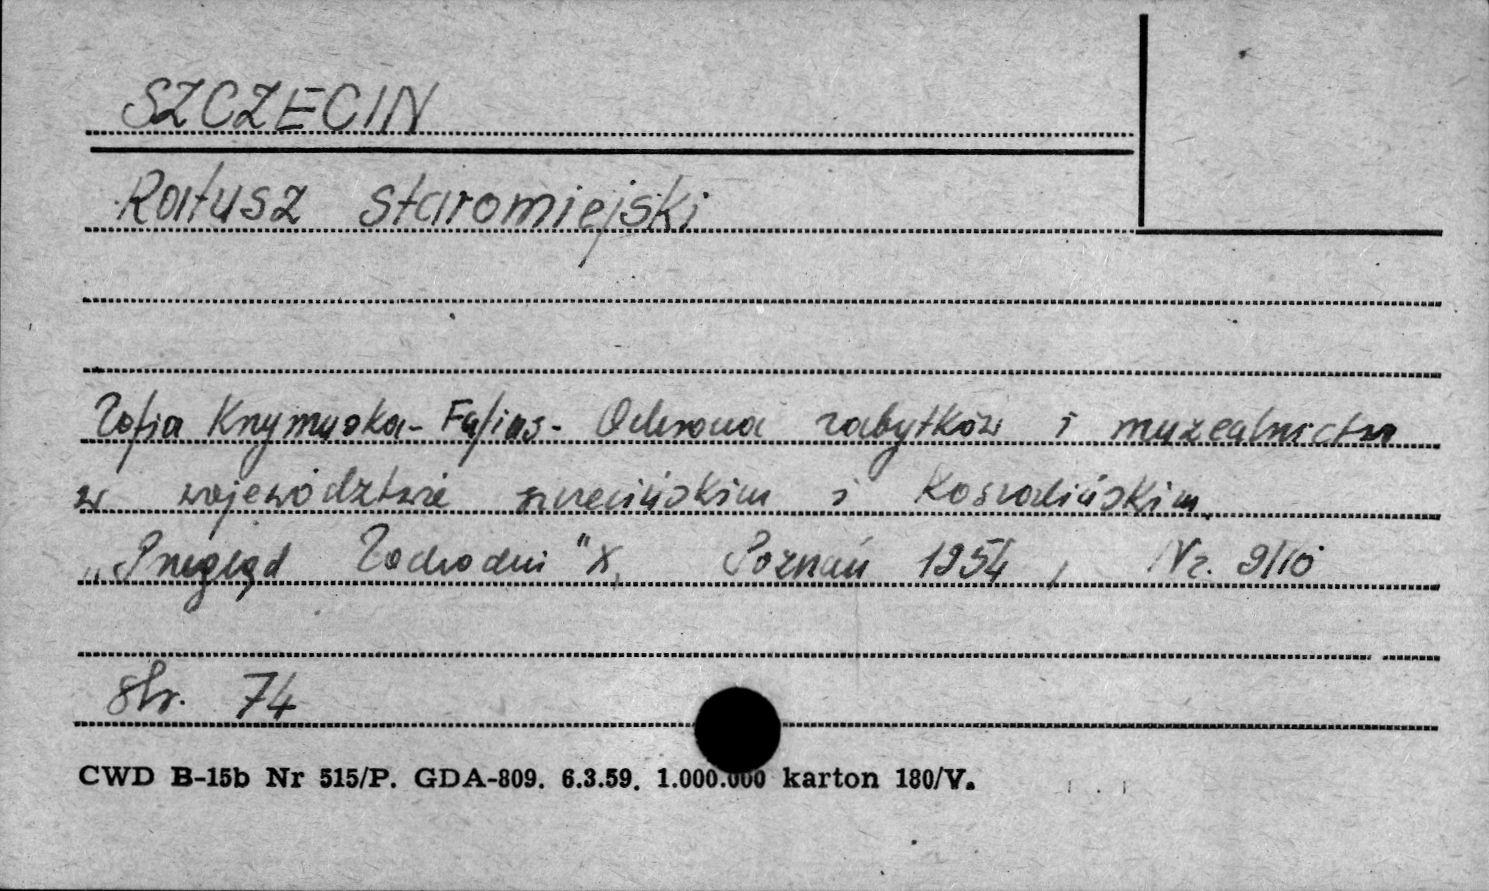 SZCZECIN
Ratusz staromiejski
Zofia Krzymuska-Fafius- Ochrona zabytków i muzealnictwo
w województwie szczecińskim i koszalińskim.
„Przegląd Zachodni" X, Poznań 1954, Nr. 9/10
str. 74
CWD B-15b Nr 515/P. GDA-809. 6.3.59. 1.000.000 karton 180/V.